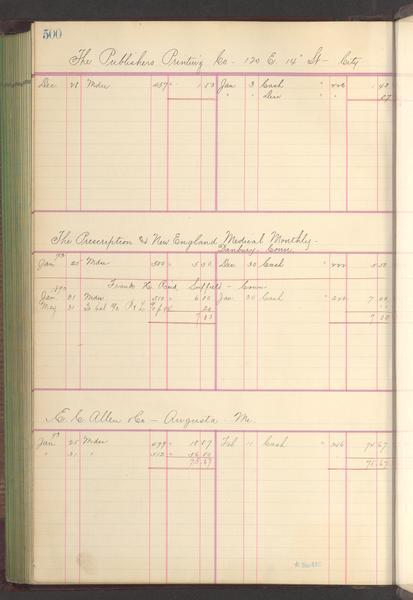 500
The Publishers Printing Co - 120 E. 14" St - City
Dec 28 Mdse 457 1.50 Jan 3 Cash 1.48
" " Disc "
The Prescription & New England Medical Monthly -
Danbury - Conn
Jan 25 Mdse 500 5.50 Dec 30 Cash 5.50
Frank H. Reid Suffield - Conn
Jan 31 Mdse 510 6.80 Jan 30 Cash 240 7.00
May 31 To bal 20
7.00 7.00
E. C. Allen & Co - Augusta - Me.
Jan 25 Mdse 18.87 Feb 11 Cash 246 75.67
" 31 " 512 56.80
75.67 75.67